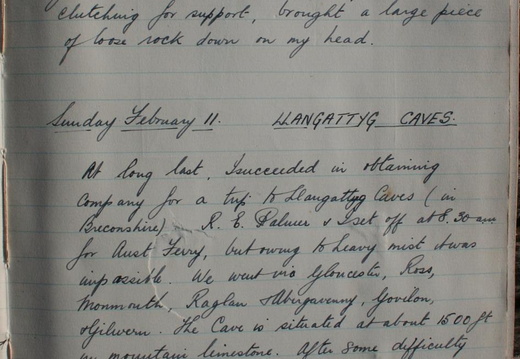 clutching for support, brought a large piece
of loose rock down on my head.
Sunday February 11. LLANGATTYG CAVES.
At long last, I succeeded in obtaining
company for a trip to Llangattyg Caves (in
Breconshire) R. E. Palmer & I set off at 8.30 am
for Aust Ferry, but owing to heavy mist it was
impossible. We went via Gloucester, Ross,
Monmouth, Raglan & Abergavenny, Govilon,
& Gilwern. The Cave is situated at about 1500 ft
in mountain limestone. After some difficulty